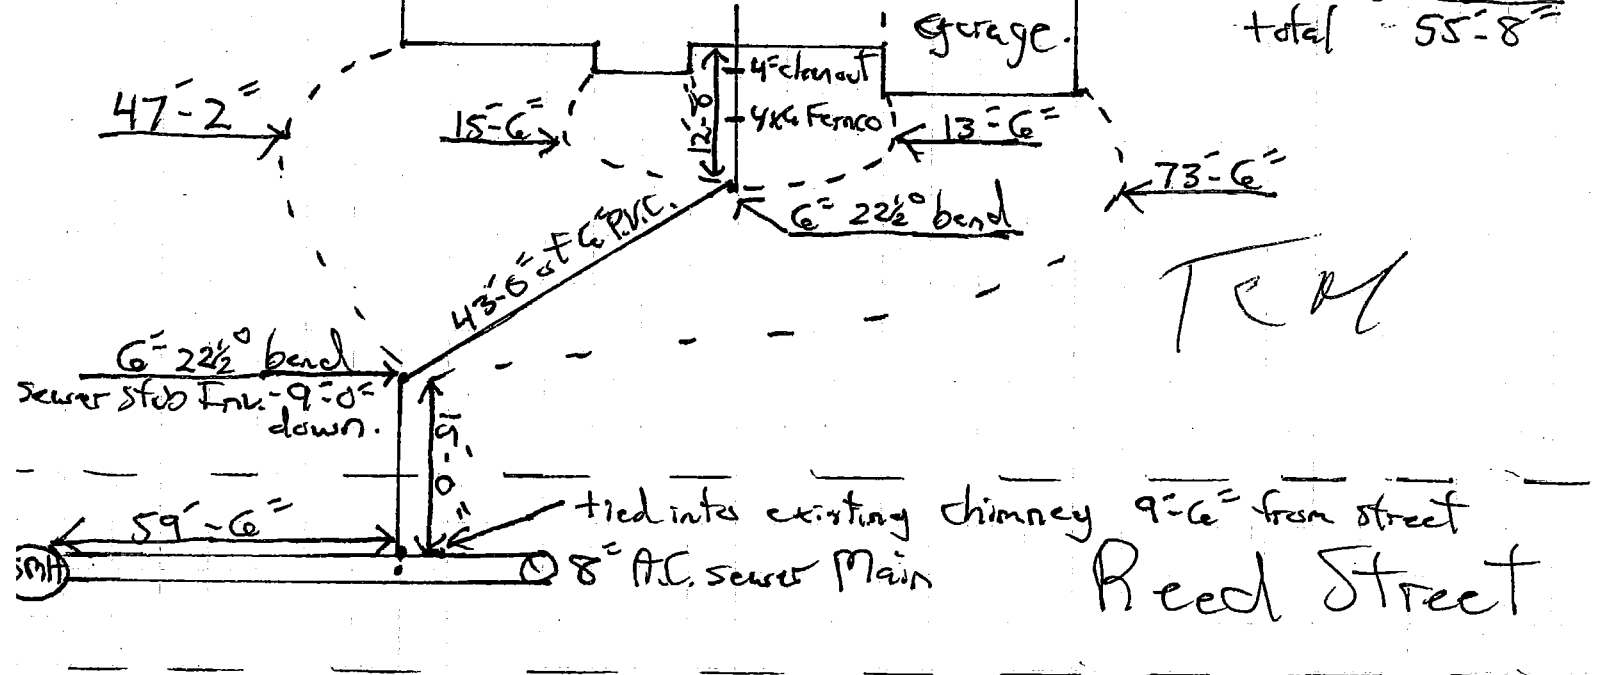 garage.
total 55'-8"
4" cleanout
47'-2"
15'-6"
12'-8
4x6 Fernco
13'-6"
73'-6"
6" 22½° bend
43'-6" of 6" P.V.C.
TCM
6" 22½° bend
sewer stub Inv. - 9'-0"
down.
9'-0"
59'-6"
tied into existing chimney 9'-6" from street
SMH
8" A.C. sewer Main
Reed Street